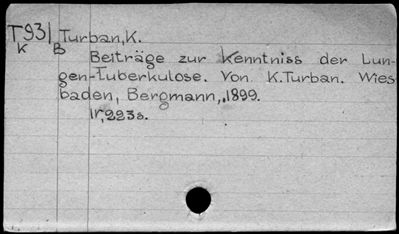 T931 Turban, K.
K B
Beiträge zur Kenntniss der Lun-
gen-Tuberkulose. Von K. Turban. Wies
baden, Bergmann, 1899.
223 s.